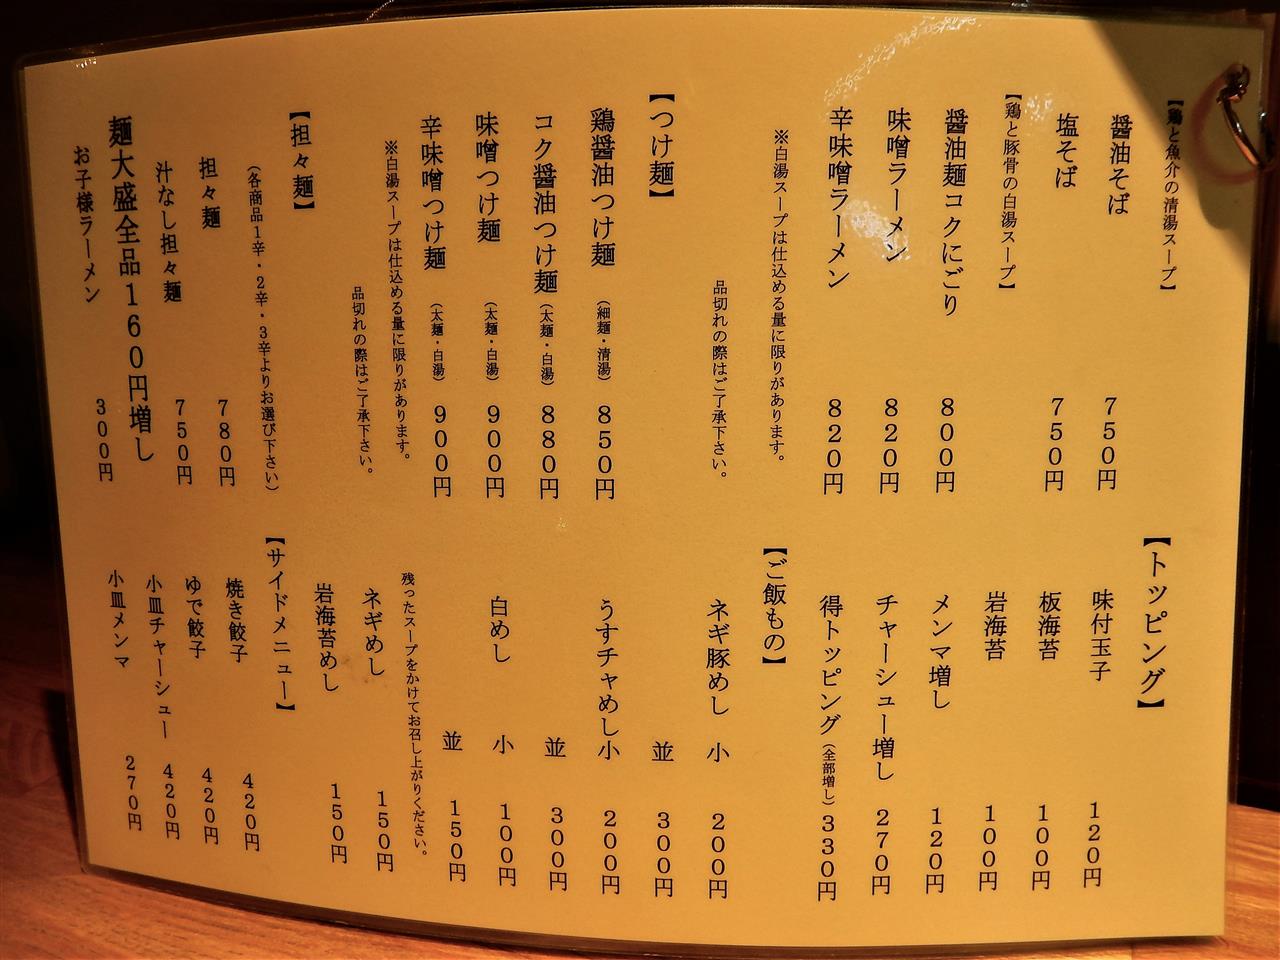 【鶏と魚介の清湯スープ】
醤油そば 750円
塩そば 750円
【鶏と豚骨の白湯スープ】
醤油麺コクにごり 800円
味噌ラーメン 820円
辛味噌ラーメン 820円
※白湯スープは仕込める量に限りがあります。
品切れの際はご了承下さい。
【つけ麺】
鶏醤油つけ麺(細麺・清湯) 850円
コク醤油つけ麺(太麺・白湯) 880円
味噌つけ麺(太麺・白湯) 900円
辛味噌つけ麺(太麺・白湯) 900円
※白湯スープは仕込める量に限りがあります。
品切れの際はご了承下さい。
【担々麺】
(各商品1辛・2辛・3辛よりお選び下さい)
担々麺 780円
汁なし担々麺 750円
麺大盛全品160円増し
お子様ラーメン 300円
【トッピング】
味付玉子 120円
板海苔 100円
岩海苔 100円
メンマ増し 120円
チャーシュー増し 270円
得トッピング(全部増し) 330円
【ご飯もの】
ネギ豚めし 小 200円
並 300円
うすチャめし小 200円
並 300円
白めし 小 100円
並 150円
残ったスープをかけてお召し上がりください。
ネギめし 150円
岩海苔めし 150円
【サイドメニュー】
焼き餃子 420円
ゆで餃子 420円
小皿チャーシュー 420円
小皿メンマ 270円